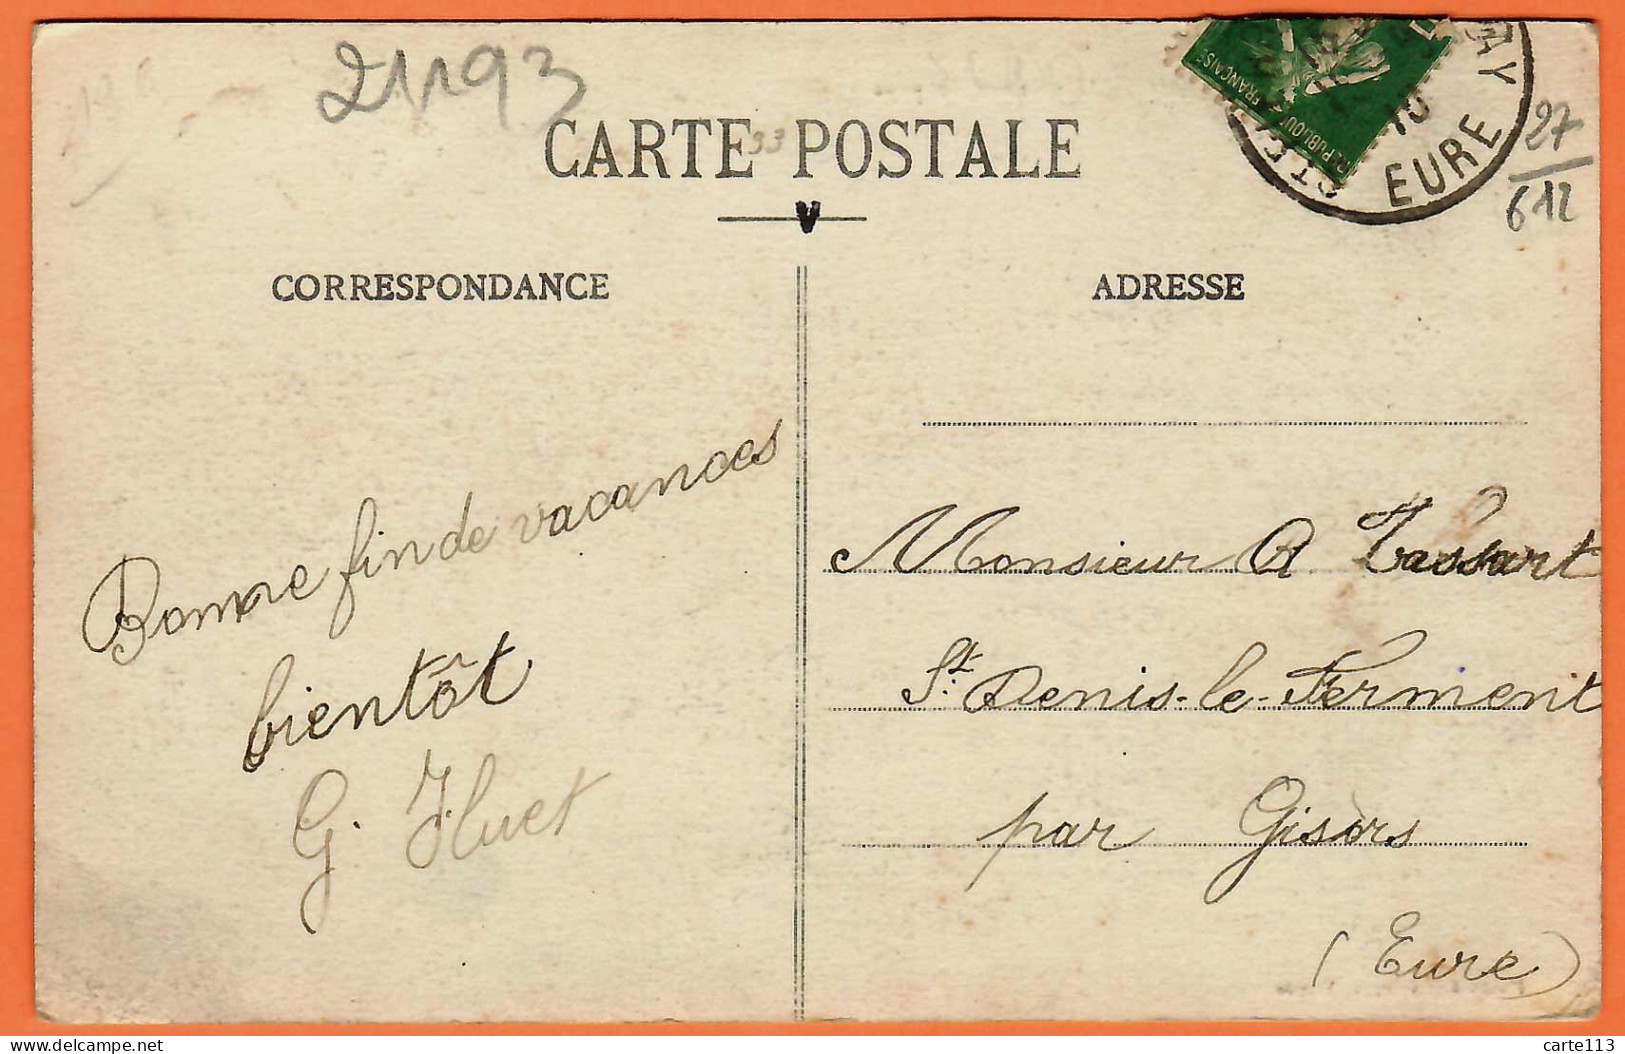 21193
CARTE POSTALE
33
27
612
RÉPUBLIQUE FRANÇAISE
EURE
10
CORRESPONDANCE
ADRESSE
Bonne fin de vacances
bientôt
G. Huet
Monsieur A Tassart
St. Denis-le-Ferment
par Gisors
(Eure)
www.delcampe.net
carte113